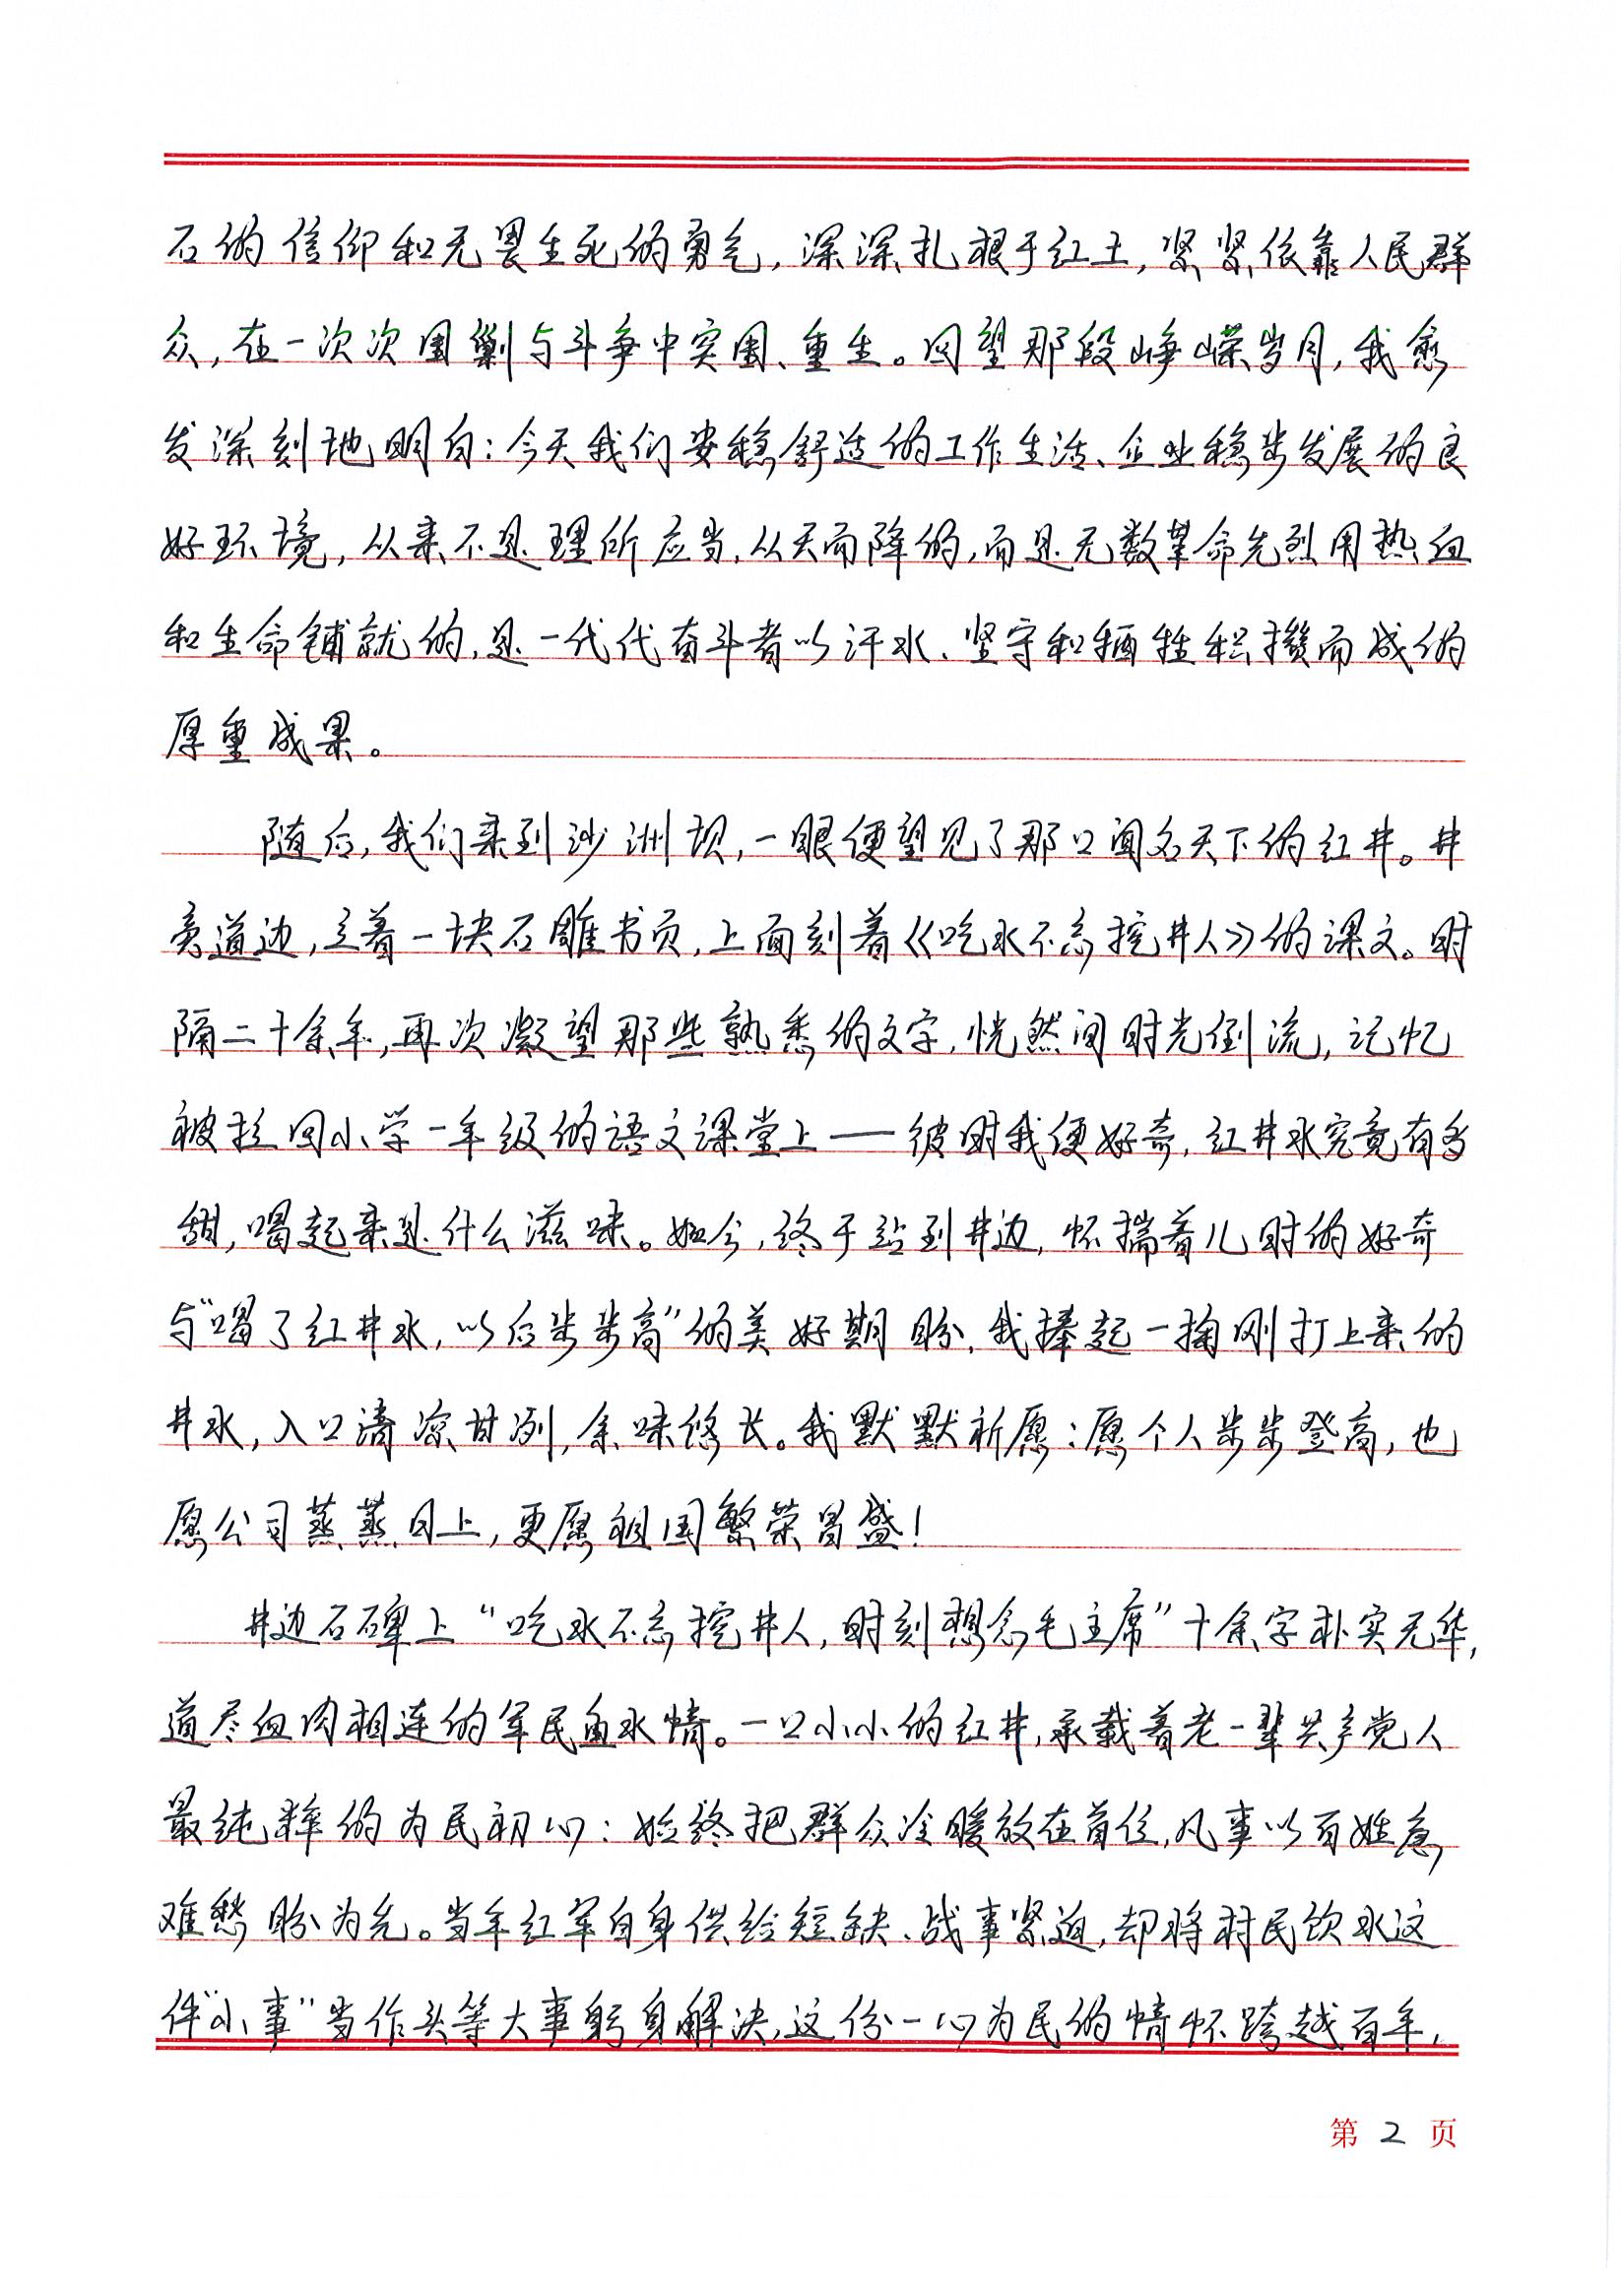 石的信仰和无畏生死的勇气，深深扎根于红土，紧紧依靠人民群
众，在一次次围剿与斗争中突围、重生。回望那段峥嵘岁月，我愈
发深刻地明白：今天我们安稳舒适的工作生活、企业稳步发展的良
好环境，从来不是理所应当、从天而降的，而是无数革命先烈用热血
和生命铺就的，是一代代奋斗者以汗水、坚守和牺牲积攒而成的
厚重成果。
随后，我们来到沙洲坝，一眼便望见了那口闻名天下的红井。井
旁道边，立着一块石雕书页，上面刻着《吃水不忘挖井人》的课文。时
隔二十余年，再次凝望那些熟悉的文字，恍然间时光倒流，记忆
被拉回小学一年级的语文课堂上——彼时我便好奇，红井水究竟有多
甜，喝起来是什么滋味。如今，终于站到井边，怀揣着儿时的好奇
与“喝了红井水，以后步步高”的美好期盼，我捧起一掬刚打上来的
井水，入口清凉甘冽，余味悠长。我默默祈愿：愿个人步步登高，也
愿公司蒸蒸日上，更愿祖国繁荣昌盛！
井边石碑上“吃水不忘挖井人，时刻想念毛主席”十余字朴实无华，
道尽血肉相连的军民鱼水情。一口小小的红井，承载着老一辈共产党人
最纯粹的为民初心：始终把群众冷暖放在首位，凡事以百姓急
难愁盼为先。当年红军自身供给短缺、战事紧迫，却将村民饮水这
件“小事”当作头等大事躬身解决，这份一心为民的情怀跨越百年，
第 2 页